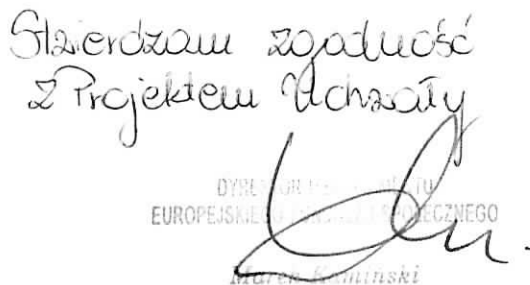 Stwierdzam zgodność
z Projektem Uchwały
DYREKTOR DEPARTAMENTU
EUROPEJSKIEGO FUNDUSZU SPOŁECZNEGO
Marek Kamiński